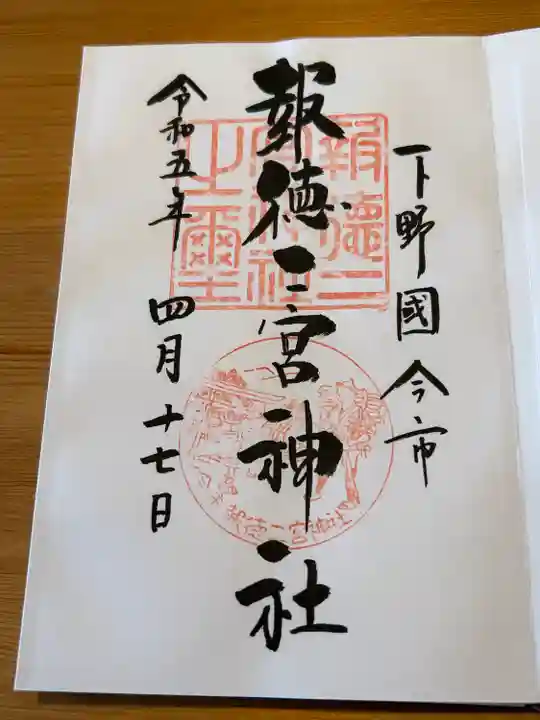 下野國 今市
報徳二宮神社
令和五年 四月 十七日
報徳二宮神社之璽
報徳二宮神社